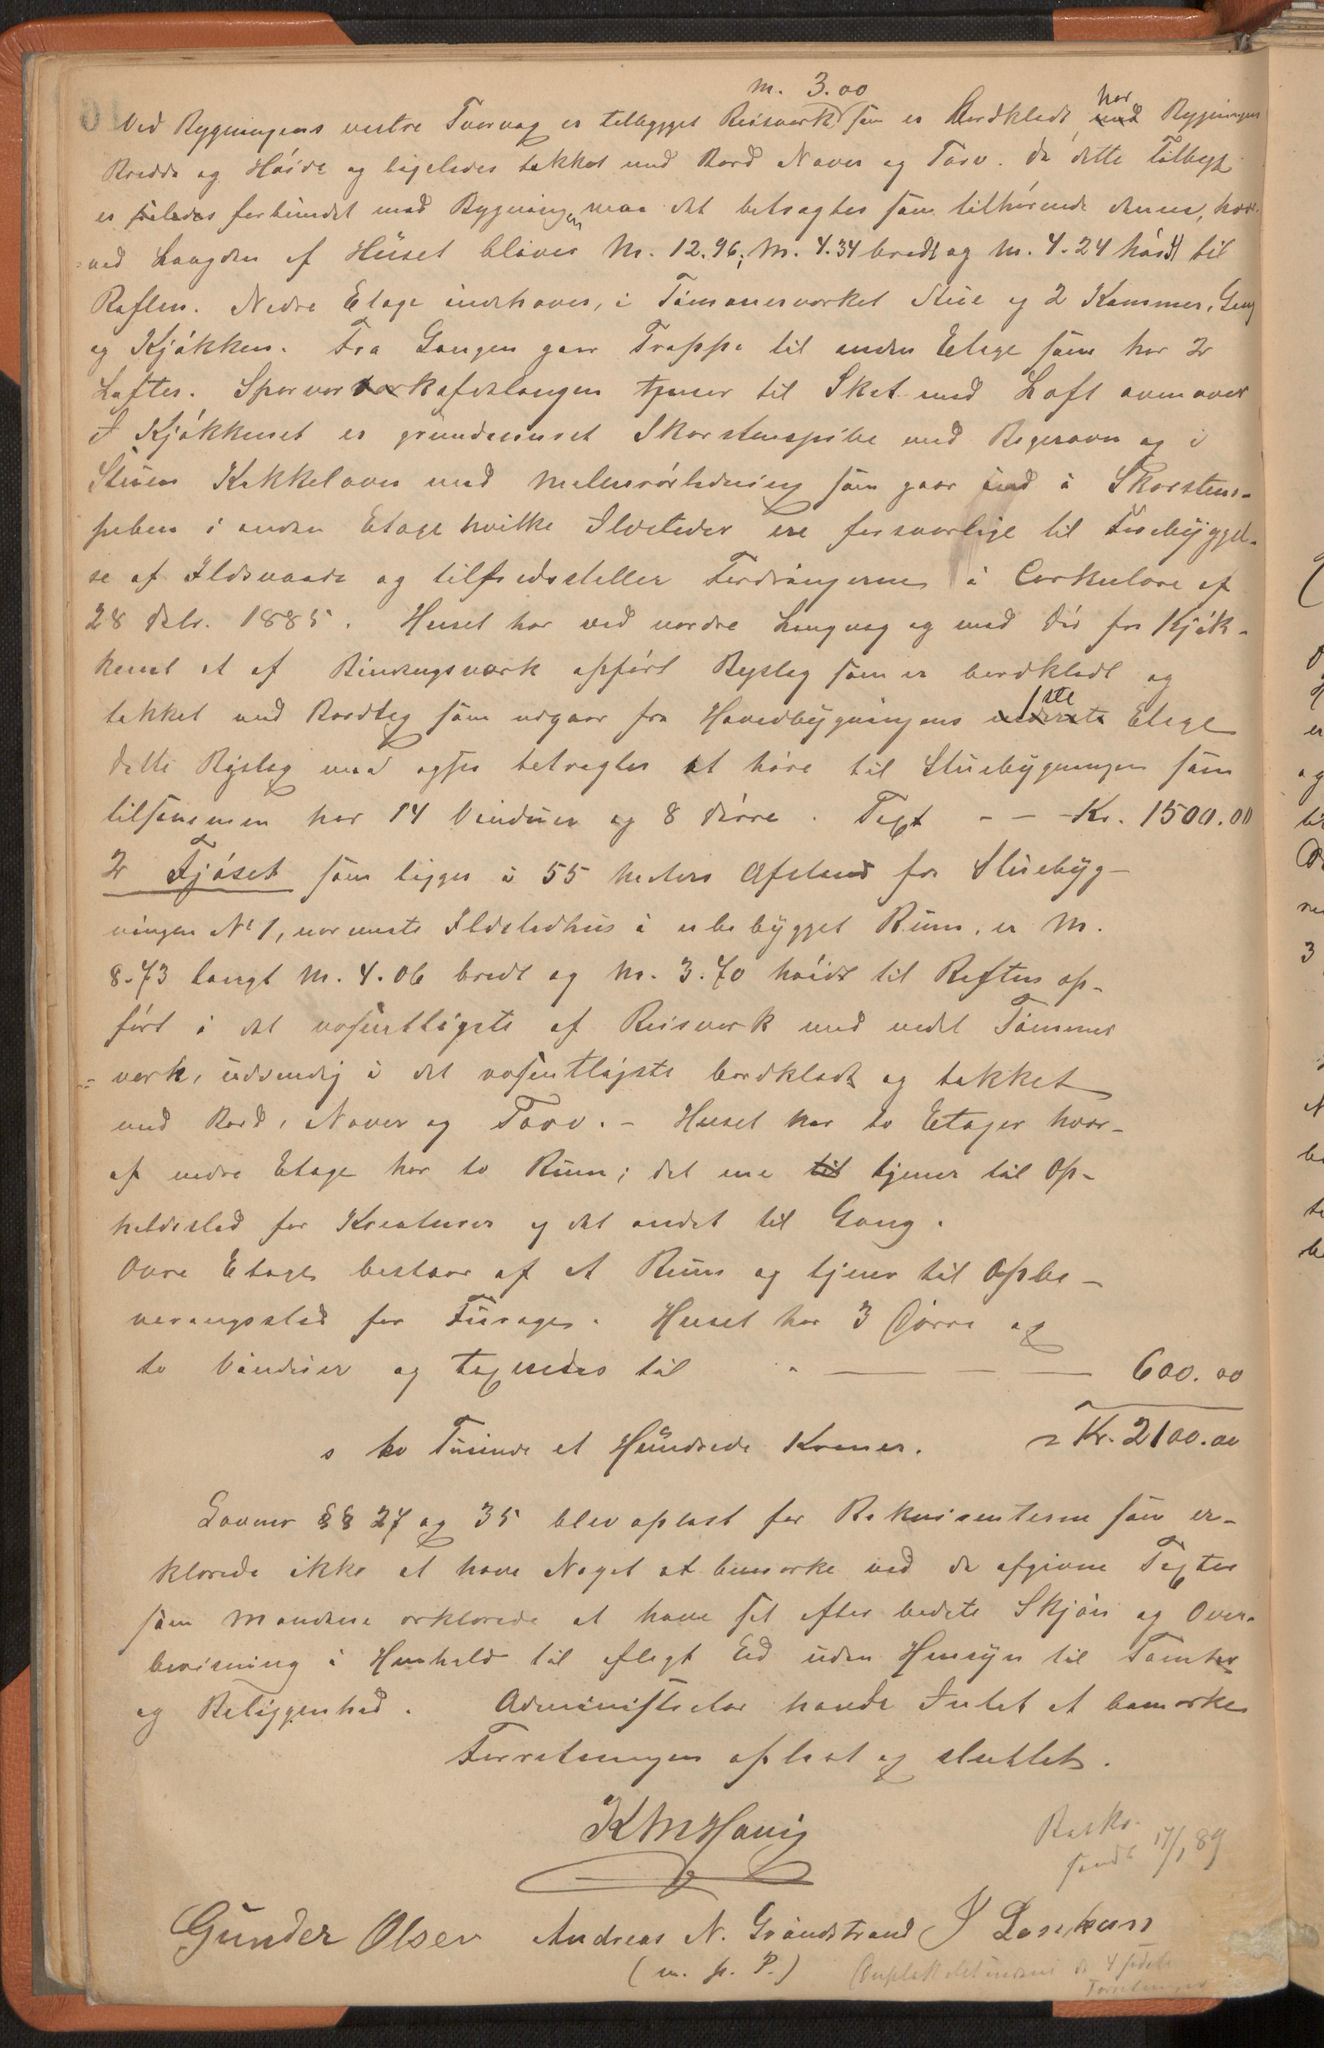 m. 3.00
Ved Bygningens vestre Tvervæg er tilbygget Reisverk som er Bordklædt, med har Bygningens
Bredde og Høide og ligeledes tækket med Bord Næver og Torv. Da dette Tilbygg
er saaledes forbundet med Bygningen maa det betragtes som tilhørende denne, hvor-
ved Længden af Huset bliver M. 12.96; M. 4.34 bredt og m. 4.24 høidt til
Raften. Nedre Etage indehaver, i Tømmerverket Stue og 2 Kammer, Gang
og Kjøkken. Fra Gangen gaar Trappe til anden Etage som har 2
Lofter. tjener til Skot med Loft ovenover
I Kjøkkenet er grundmuret Skorstenspibe med Bagerovn og i
Stuen Kakkelovn med Malmrørledning som gaar ind i Skorstens-
piben i anden Etage hvilke Ildsteder ere forsvarlige til Forebyggel-
se af Ildsvaade og tilfredsstiller Fordringerne i Cirkulære af
28 Debr. 1885. Huset har ved nordre Langvæg og med Dør fra Kjøk-
kenet et af Bindingsværk opført Bislag som er bordklædt og
tækket med Bordtag som udgaar fra Hovedbygningens nederste 1ste Etage
dette Bislag maa ogsaa betragtes at høre til Stuebygningen som
tilsammen har 14 Vinduer og 8 Dørre. Taxt - - - Kr. 1500.00
2 Fjøset som ligger i 55 meters Afstand fra Stuebyg-
ningen No 1, nærmeste Ildstedhus i ubebygget Rum, er M.
8.73 langt M. 4.06 bredt og M. 3.70 høidt til Raften op-
ført i det væsentligste af Reisverk med nedet Tømmer
verk, udvendig i det væsentligste bordklædt og tækket
med Bord, Næver og Torv. - Huset har to Etager hvor-
af nedre Etage har to Rum; det ene til tjener til Op-
holdssted for Kreaturer og det andet til Gang.
Øvre Etage bestaar af et Rum og tjener til Opbe-
varingssted for Furage. Huset har 3 Dørre og
to Vinduer og taxeredes til - 600.00
to Tusinde et Hundrede Kroner. = Kr. 2100.00
Lovens §§ 27 og 35 blev oplæst for Rekvirenterne som er-
klærede ikke at have Noget at bemærke ved de afgivne Taxter
som Mændene erklærede at have sat efter bedste Skjøn og Over-
bevisning i Henhold til aflagt Ed uden Hensyn til Tomter
og Beliggenhed. Administrator havde Intet at bemærke
Forretningen oplæst og sluttet.
K M Havig
Besk.
sendt 17/1 89
Gunder Olsen Andreas N. Grøndstrand
(m. p. P.)